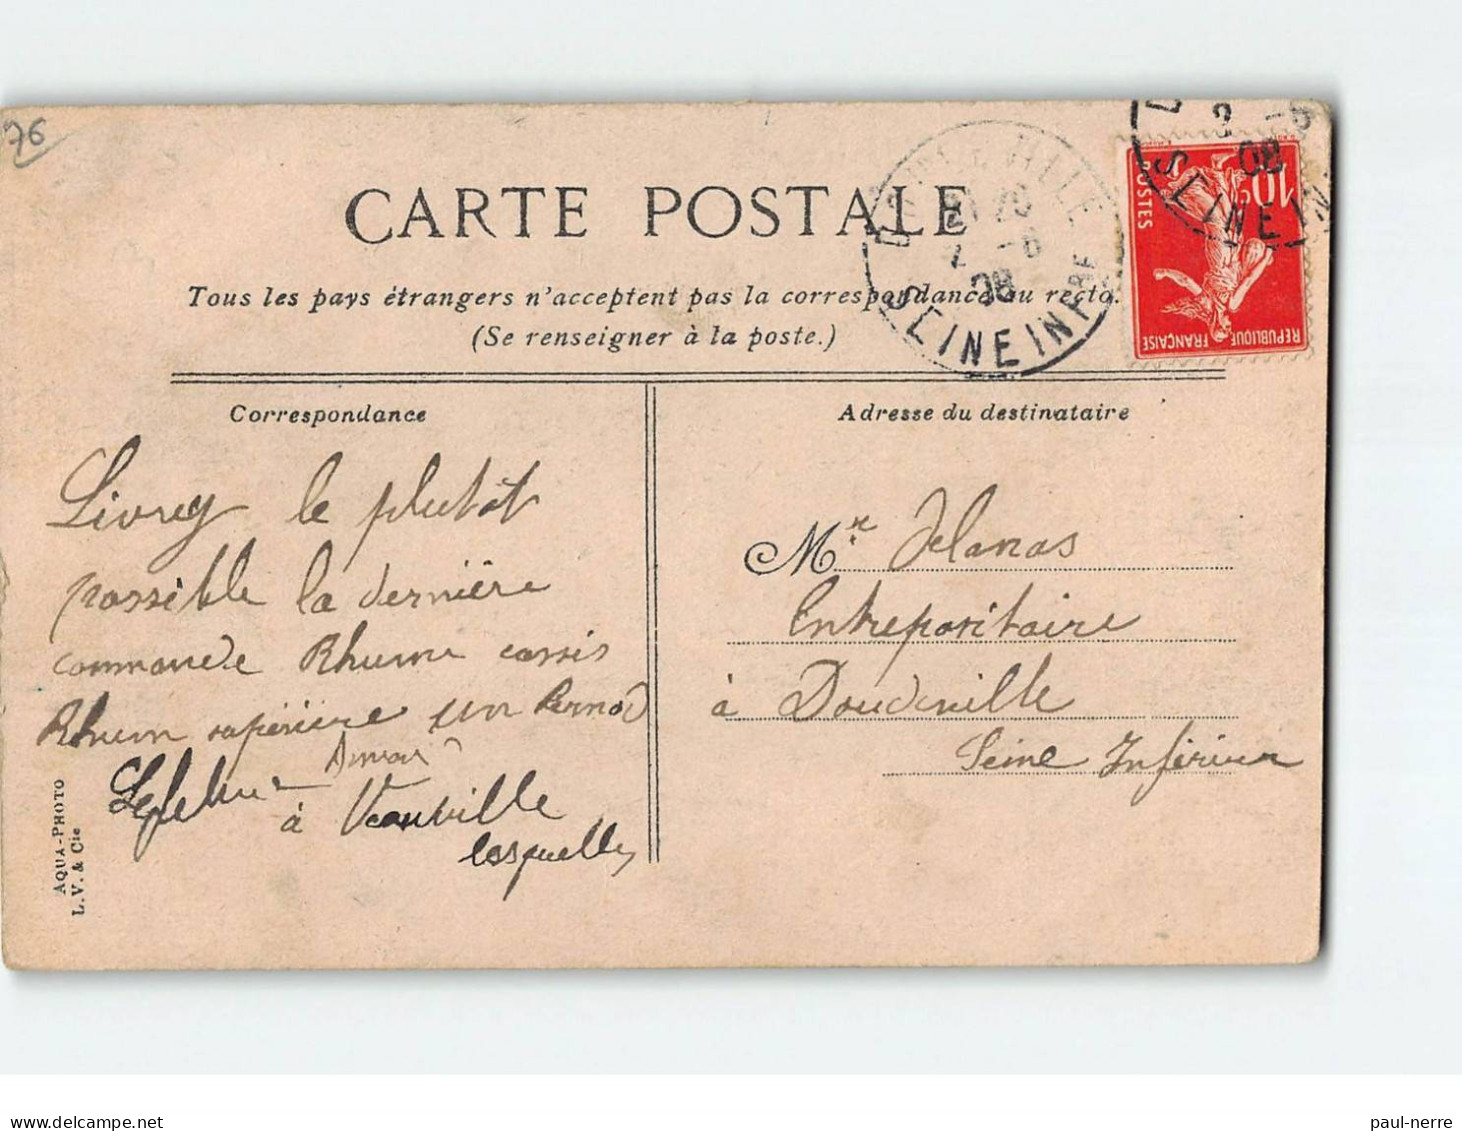 76
CARTE POSTALE
Tous les pays étrangers n'acceptent pas la correspondance au recto.
(Se renseigner à la poste.)
10c
POSTES
REPUBLIQUE FRANÇAISE
SEINE INFRE
2 -6
08
SEINE IN
08
Correspondance
Adresse du destinataire
Livrez le plutôt
possible la dernière
commande Rhum cassis
Rhum supérieure un Pernod
Lefebvre
à Veauville
lesquelles
Mr Delanos
Entrepositaire
à Doudeville
Seine Inférieure
AQUA-PHOTO
L. V. & Cie
paul-nerre